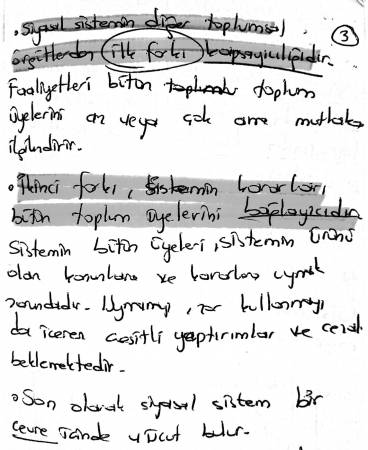 • Siyasal sistemin diğer toplumsal
örgütlerden ilk farkı kapsayıcılığıdır.
3
Faaliyetleri bütün toplum
üyelerini az veya çok ama mutlaka
ilgilendirir.
• İkinci farkı, sistemin kararları,
bütün toplum üyelerini bağlayıcıdır.
Sistemin bütün üyeleri, sistemin ürünü
olan kanunlara ve kararlara uymak
zorundadır. Uymamayı, zor kullanmayı
da içeren çeşitli yaptırımlar ve cezalar
beklemektedir.
• Son olarak siyasal sistem bir
çevre içinde vücut bulur.